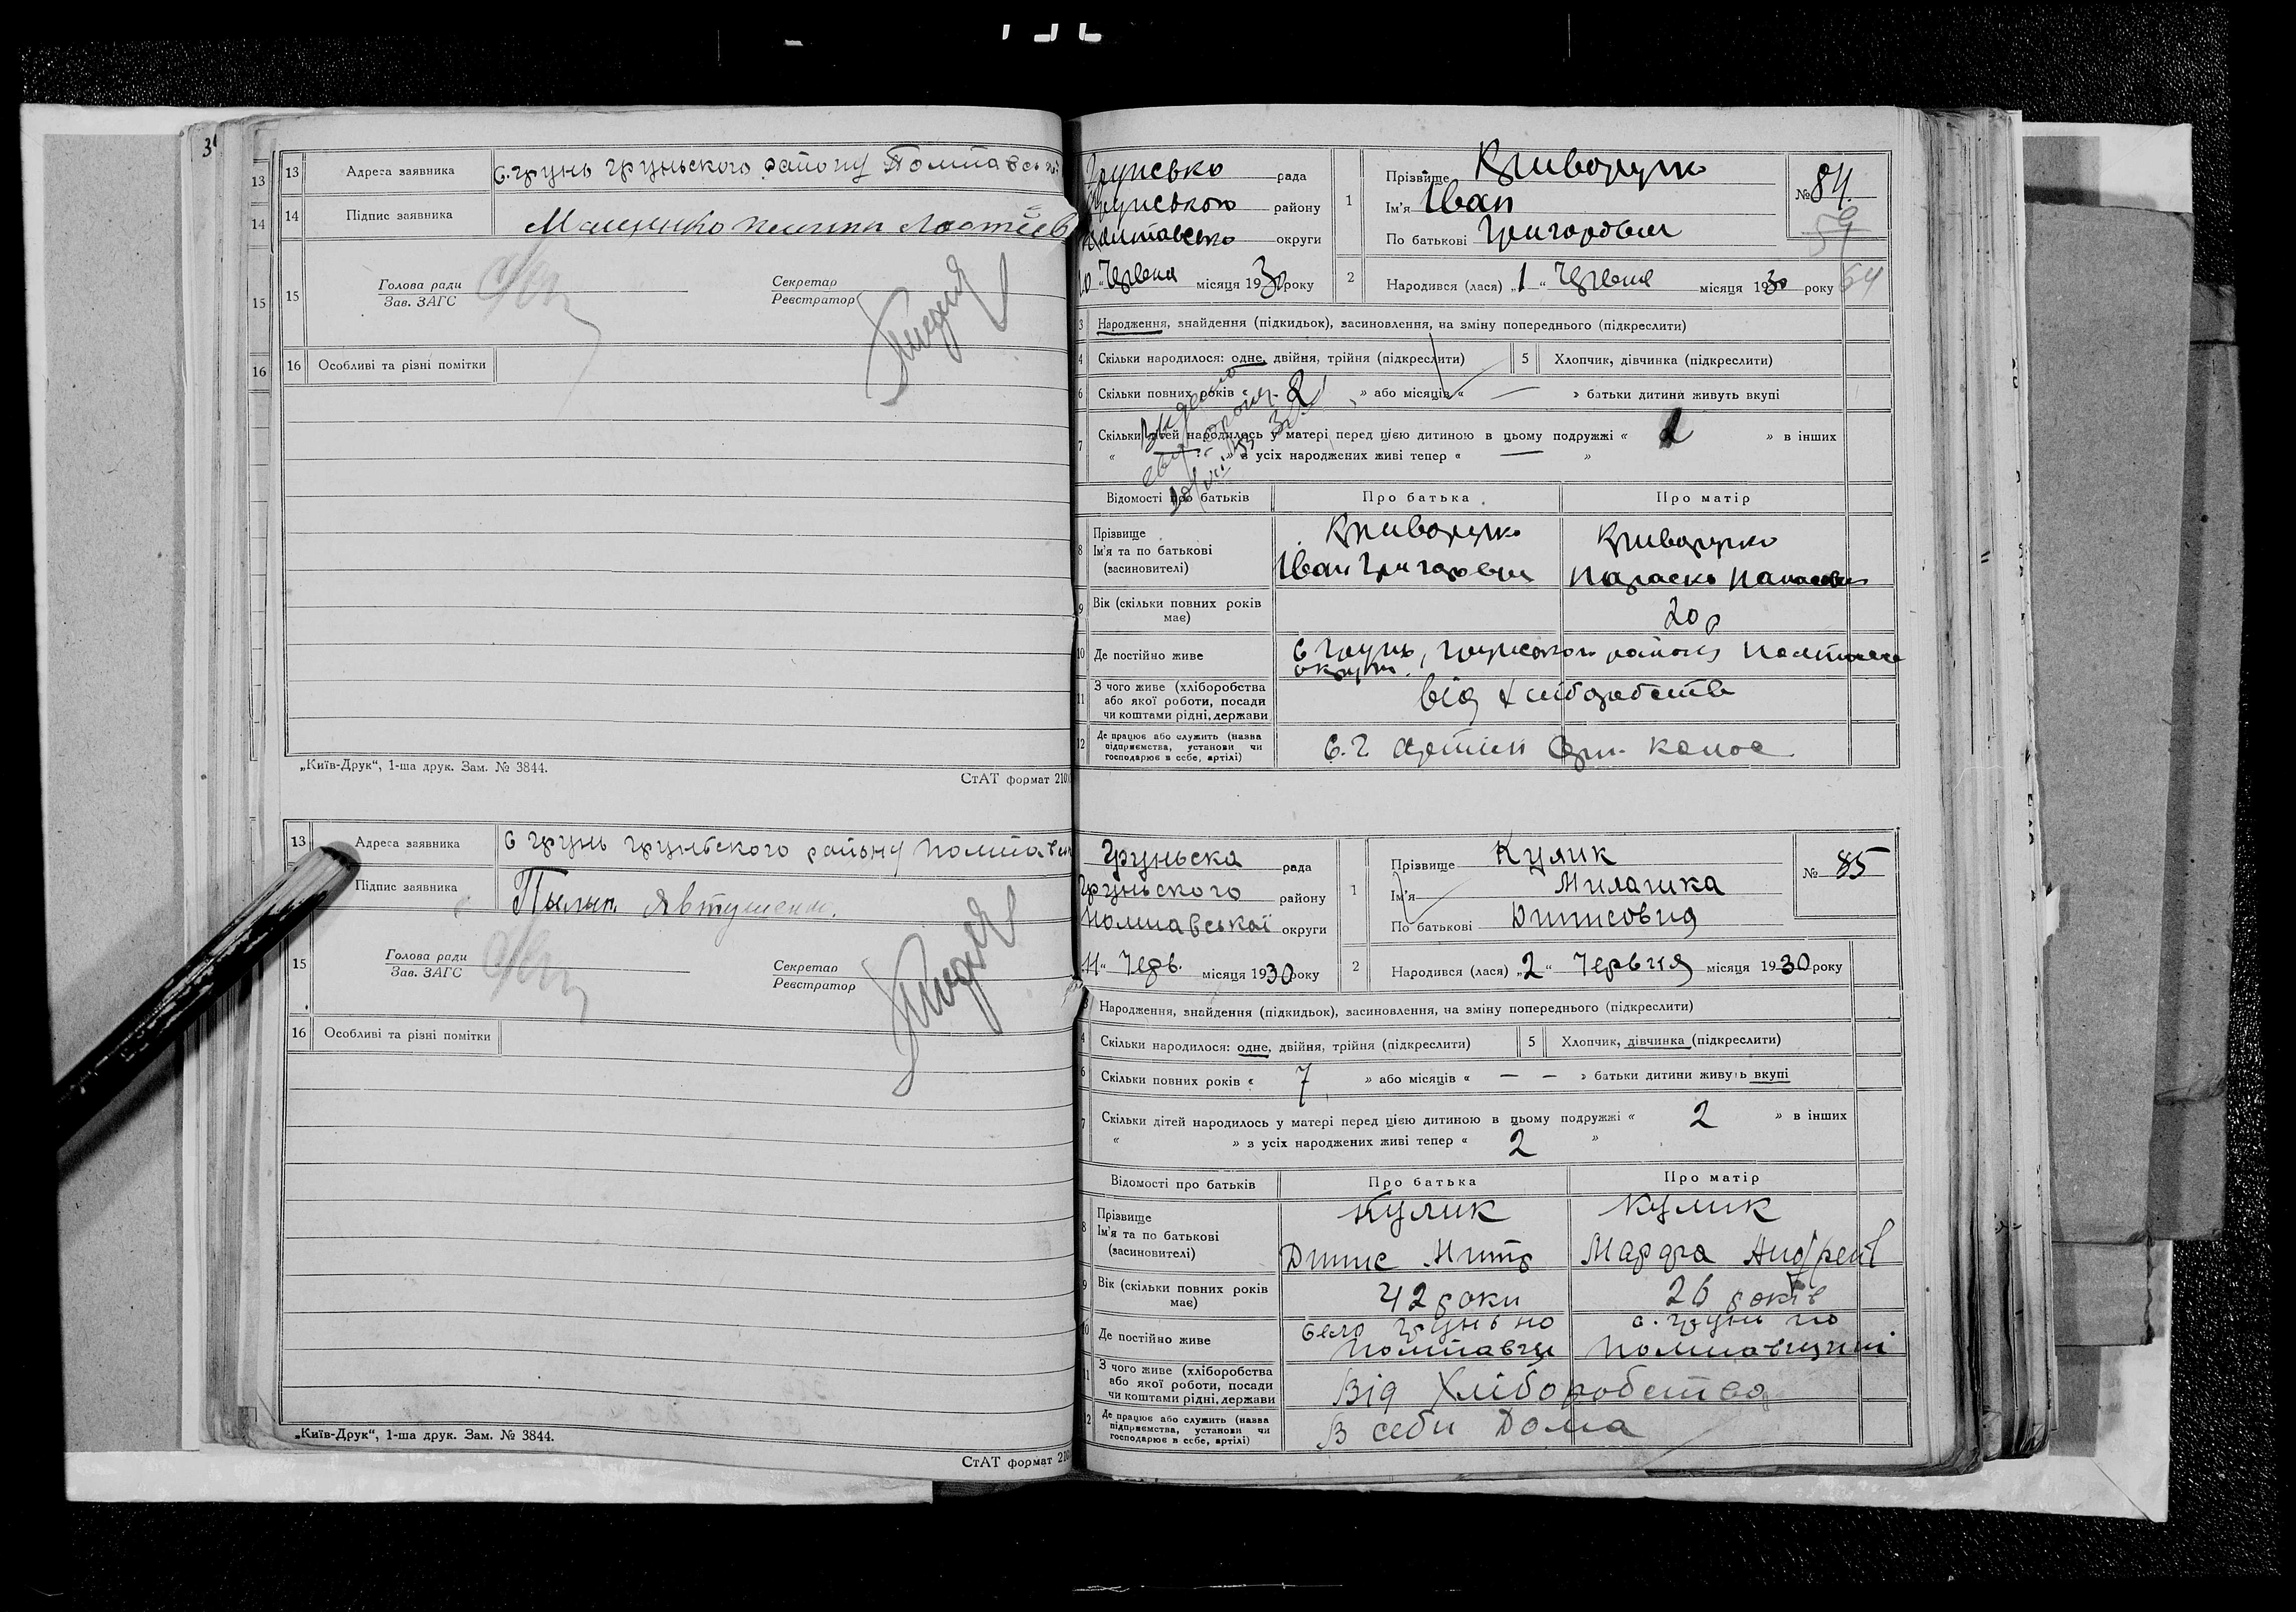 13 Адреса заявника с. Грунь Грунського району
14 Підпис заявника
15 Голова ради
Зав. ЗАГС
Секретар
Реєстратор
16 Особливі та різні помітки
„Київ-Друк“, 1-ша друк. Зам. № 3844.
СтАТ формат 210
13 Адреса заявника с Грунь Груньского району
Підпис заявника Пылып Явтушенко.
15 Голова ради
Зав. ЗАГС
Секретар
Реєстратор
16 Особливі та різні помітки
„Київ-Друк“, 1-ша друк. Зам. № 3844.
СтАТ формат 210
рада
району
округи
10 „ Червня місяця 1930 року
1 Прізвище Криворучко
Ім'я Іван
По батькові
№ 84.
59
64
2 Народився (лася) „1“ Червня місяця 1930 року
3 Народження, знайдення (підкидьок), засиновлення, на зміну попереднього (підкреслити)
4 Скільки народилося: одне, двійня, трійня (підкреслити)
5 Хлопчик, дівчинка (підкреслити)
6 Скільки повних років « 2 » або місяців « — » батьки дитини живуть вкупі
7 Скільки дітей народилось у матері перед цією дитиною в цьому подружжі « » в інших
« — » з усіх народжених живі тепер « — »
Відомості про батьків
Про батька
Про матір
8 Прізвище
Ім'я та по батькові
(засиновителі)
Криворучко
Іван Григорович
Криворучко
Параска
9 Вік (скільки повних років
має)
20 р
10 Де постійно живе
с Грунь, району
округи.
11 З чого живе (хліборобства
або якої роботи, посади
чи коштами рідні, держави
від хліборобств
12 Де працює або служить (назва
підприємства, установи чи
господарює в себе, артілі)
Груньска рада
Груньского району
Полтавської округи
11 „ Черв. місяця 1930 року
1 Прізвище Кулик
Ім'я
По батькові
№ 85
2 Народився (лася) „2“ Червня місяця 1930 року
3 Народження, знайдення (підкидьок), засиновлення, на зміну попереднього (підкреслити)
4 Скільки народилося: одне, двійня, трійня (підкреслити)
5 Хлопчик, дівчинка (підкреслити)
6 Скільки повних років « 7 » або місяців « — — » батьки дитини живуть вкупі
7 Скільки дітей народилось у матері перед цією дитиною в цьому подружжі « 2 » в інших
« » з усіх народжених живі тепер « 2 »
Відомості про батьків
Про батька
Про матір
8 Прізвище
Ім'я та по батькові
(засиновителі)
Кулик
Кулик
9 Вік (скільки повних років
має)
42 роки
26 років
10 Де постійно живе
село Грунь на
с. Грунь на
Полтавщині
11 З чого живе (хліборобства
або якої роботи, посади
чи коштами рідні, держави
Від Хліборобства
12 Де працює або служить (назва
підприємства, установи чи
господарює в себе, артілі)
В себи Дома